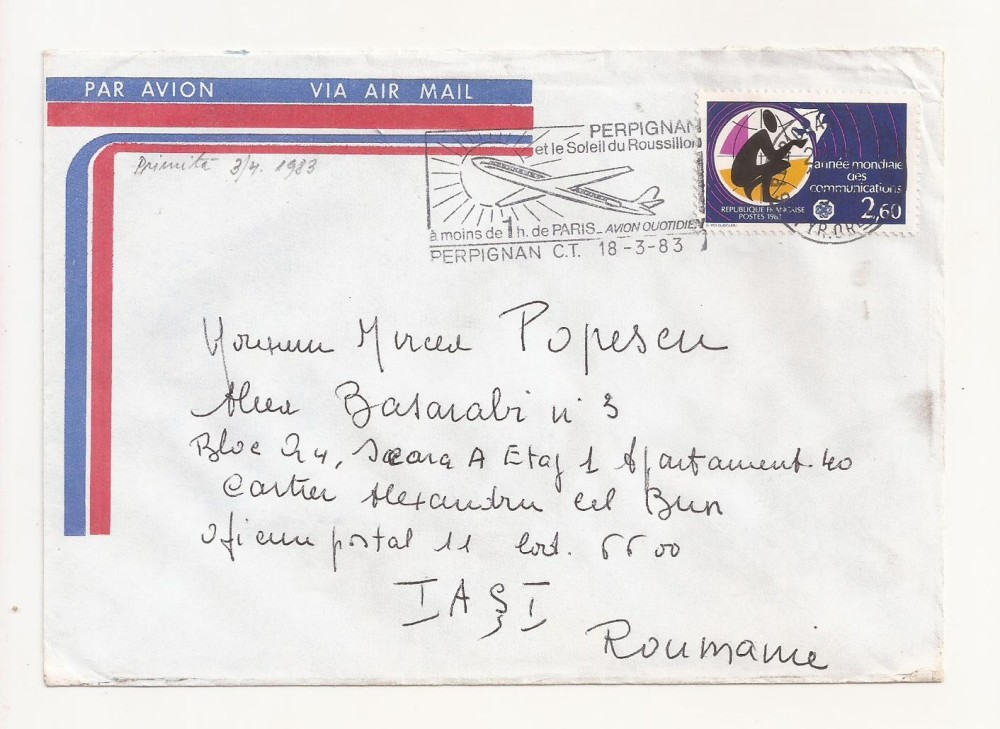 PAR AVION VIA AIR MAIL
Primită 3/4. 1983
PERPIGNAN
et le Soleil du Roussillon
à moins de 1 h. de PARIS_ AVION QUOTIDIEN
PERPIGNAN C.T. 18-3-83
année mondiale
des
communications
REPUBLIQUE FRANÇAISE
POSTES 1983
2,60
Monsieur Mircea Popescu
Aleea Basarabi n° 3
Bloc 24, Scara A Etaj 1 Apartament 40
Cartier Alexandru cel Bun
Oficiu postal 11 Cod. 6600
IAŞI
Roumanie